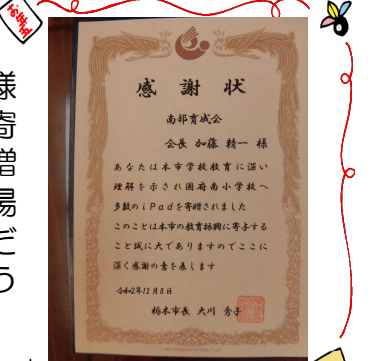 お年玉
感謝状
南部育成会
会長 加藤 精一 様
あなたは本市学校教育に深い
理解を示され国府南小学校へ
多数のiPadを寄贈されました
このことは本市の教育振興に寄与する
こと誠に大でありますのでここに
深く感謝の意を表します
令和2年12月8日
栃木市長 大川 秀子
様寄増場だう